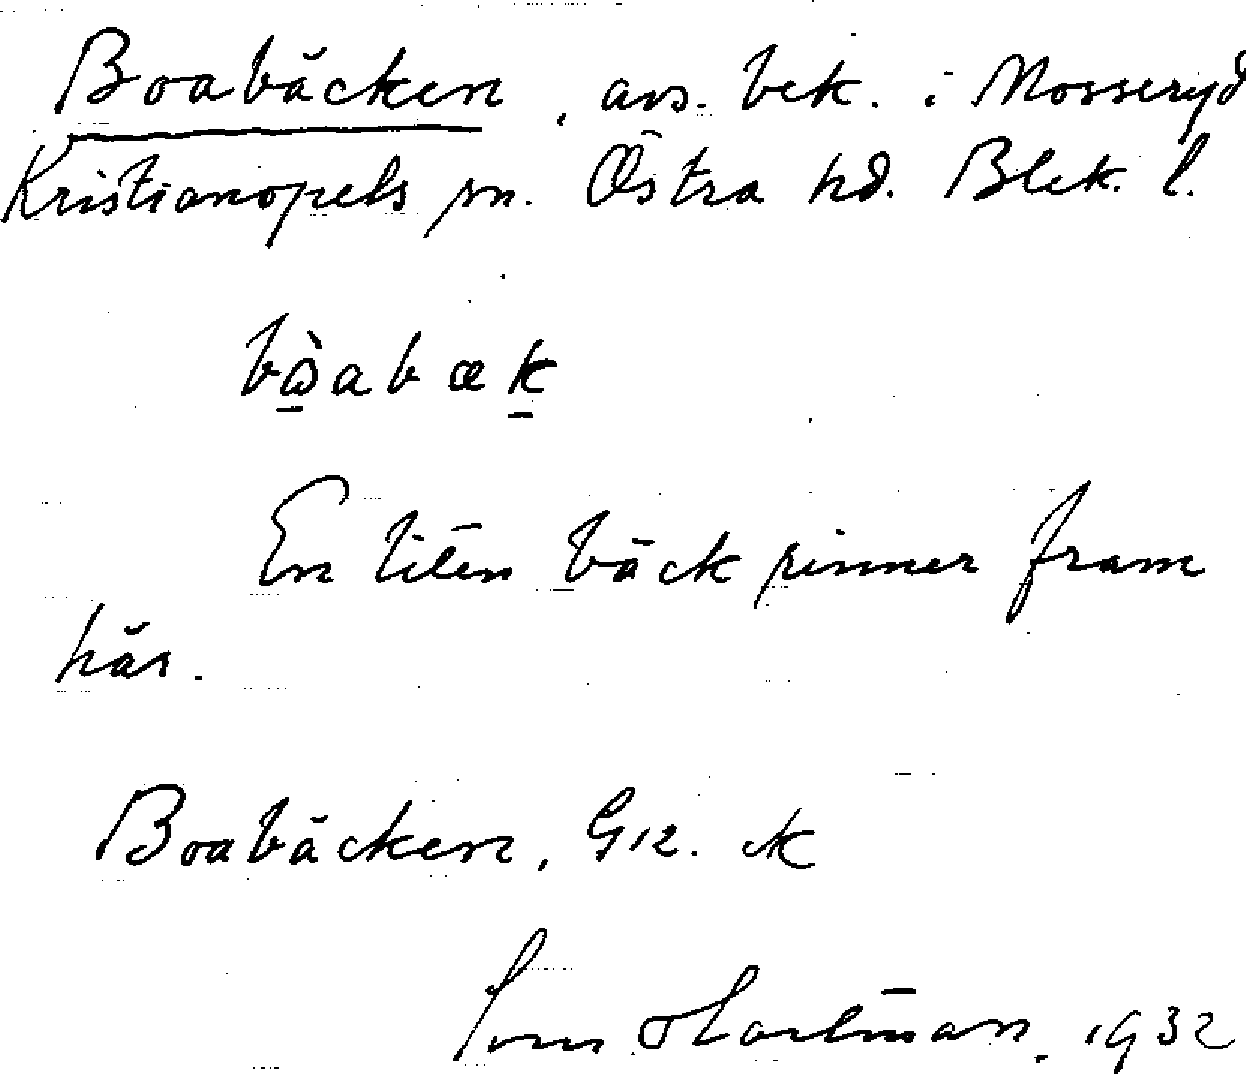 Boabäcken, avs. bek. i Mosseryd
Kristianopels sn. Östra hd. Blek. l.
En liten bäck rinner fram
här.
Boabäcken, G12. ck
Hartman. 1932